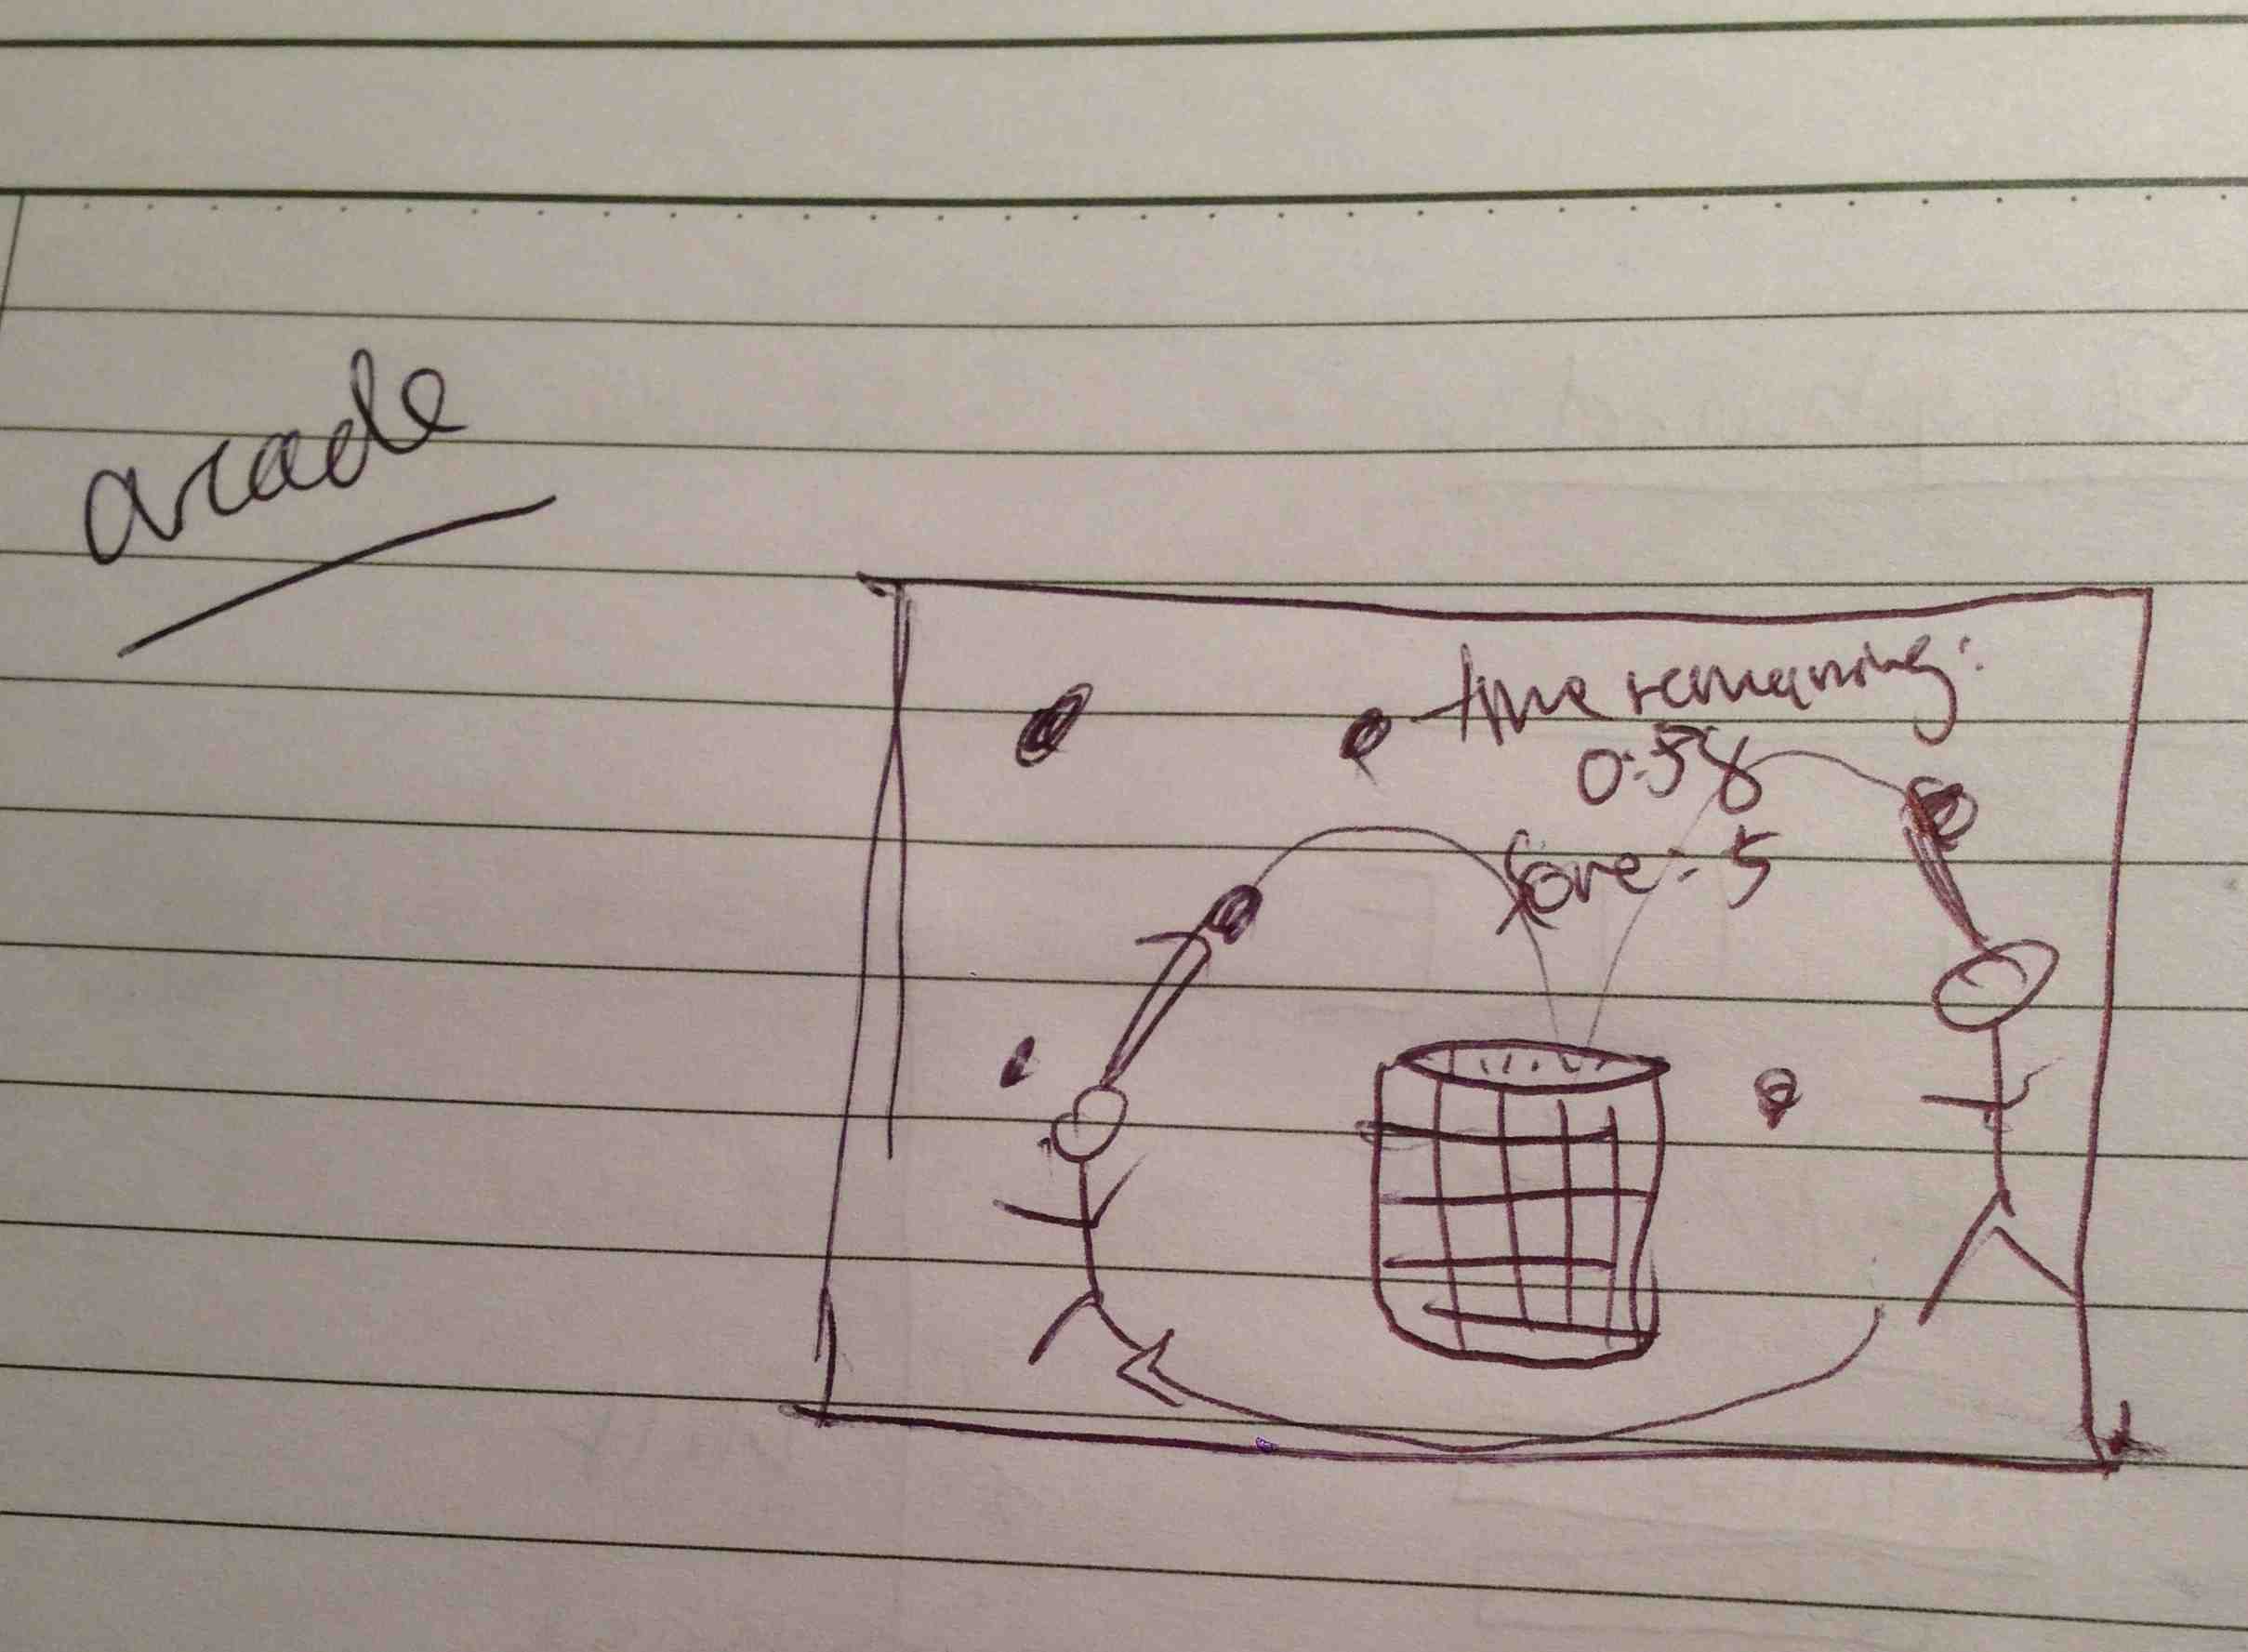 arcade
time remaining:
0:58
Score: 5